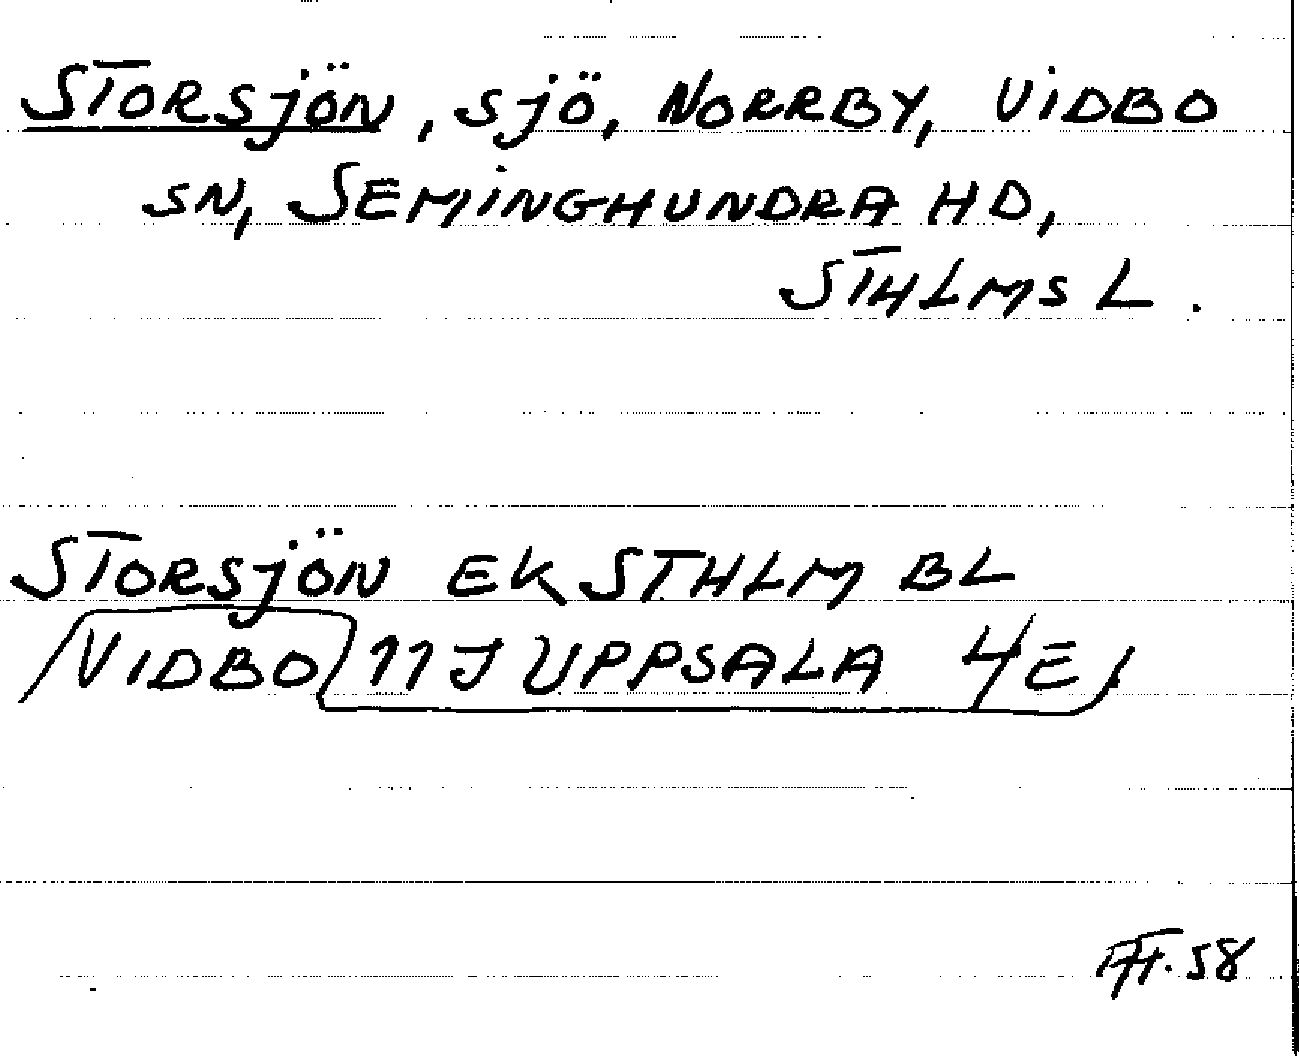 STORSJÖN, SJÖ, NORRBY, VIDBO
SN, SEMINGHUNDRA HD,
STHLMS L.
STORSJÖN EK STHLM BL
VIDBO 11 J UPPSALA 4E
58